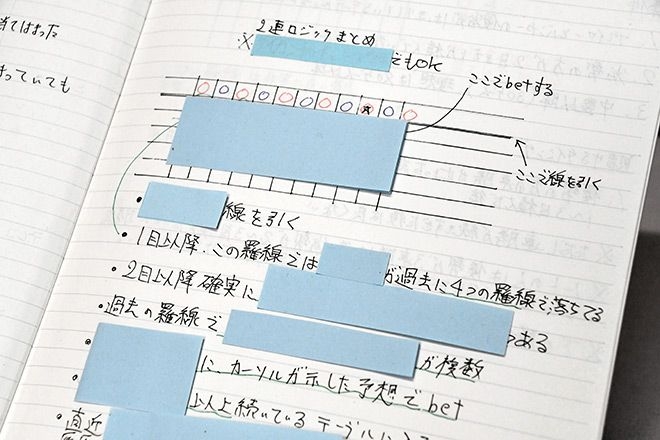 当てはまった
まっていても
2連ロジックまとめ
※ でもOK
ここでbetする
ここで線を引く
・ 線を引く
・1目以降、この羅線では が過去に4つの羅線で落ちてる
・2目以降確実に つある
・過去の羅線で が複数
に、カーソルが示した予想でbet
以上続いているテーブルに
・直近